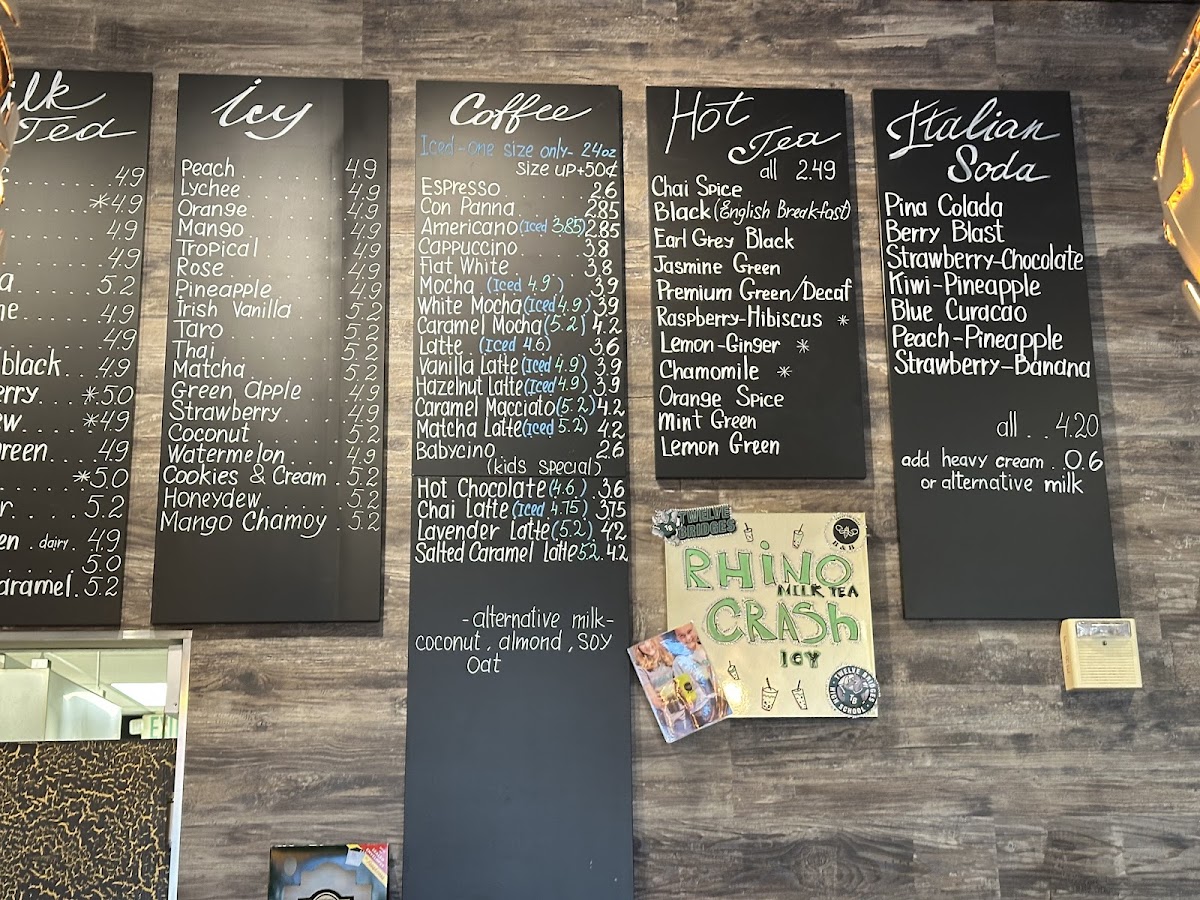 ilk
Tea
4.9
*4.9
4.9
4.9
a 5.2
ne 4.9
4.9
black.. 4.9
erry... *5.0
ew.. *4.9
reen.... 4.9
*5.0
r 5.2
en . dairy. 4.9
5.0
aramel. 5.2
Icy
Peach 4.9
Lychee 4.9
Orange 4.9
Mango 4.9
Tropical 4.9
Rose 4.9
Pineapple 4.9
Irish Vanilla 5.2
Taro 5.2
Thai 5.2
Matcha 5.2
Green Apple 4.9
Strawberry 4.9
Coconut 5.2
Watermelon 4.9
Cookies & Cream . 5.2
Honeydew 5.2
Mango Chamoy . 5.2
Coffee
Iced-one size only- 24oz
Size up+50¢
Espresso 2.6
Con Panna 2.85
Americano (Iced 3.85) 2.85
Cappuccino 3.8
Flat White 3.8
Mocha (Iced 4.9) 3.9
White Mocha (Iced 4.9) 3.9
Caramel Mocha (5.2) 4.2
Latte (Iced 4.6) 3.6
Vanilla Latte (Iced 4.9) 3.9
Hazelnut Latte (Iced 4.9) 3.9
Caramel Macciato (5.2) 4.2
Matcha Latte (Iced 5.2) 4.2
Babycino 2.6
(kids special)
Hot Chocolate (4.6) .3.6
Chai Latte (Iced 4.75) 3.75
Lavender Latte (5.2) 4.2
Salted Caramel latte 5.2. 4.2
-alternative milk-
coconut, almond, SOY
Oat
Hot
Tea
all 2.49
Chai Spice
Black (English Breakfast)
Earl Grey Black
Jasmine Green
Premium Green/Decaf
Raspberry-Hibiscus *
Lemon-Ginger *
Chamomile *
Orange Spice
Mint Green
Lemon Green
TWELVE
BRIDGES
RHINO
MILK TEA
CRASH
ICY
TWELVE BRIDGES
HIGH SCHOOL
Italian
Soda
Pina Colada
Berry Blast
Strawberry-Chocolate
Kiwi-Pineapple
Blue Curacao
Peach-Pineapple
Strawberry-Banana
all . . 4.20
add heavy cream . 0.6
or alternative milk